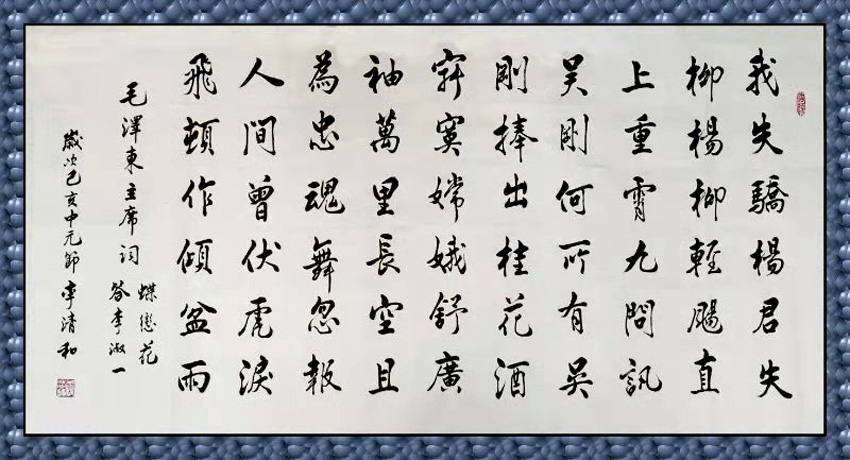 我失驕楊君失
柳楊柳輕颺直
上重霄九問訊
吴剛何所有吴
剛捧出桂花酒
寂寞嫦娥舒廣
袖萬里長空且
為忠魂舞忽報
人間曾伏虎淚
飛頓作傾盆雨
毛澤東主席詞
蝶戀花
答李淑一
歲次己亥中元節李清和